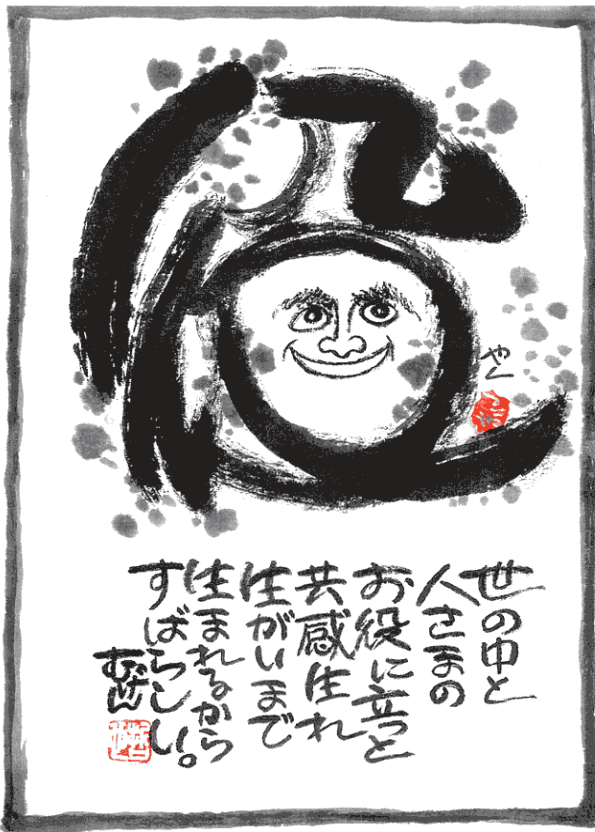 役
やく
世の中と
人さまの
お役に立っと
共感生れ
生がいまで
生まれるから
すばらしい。
むげん